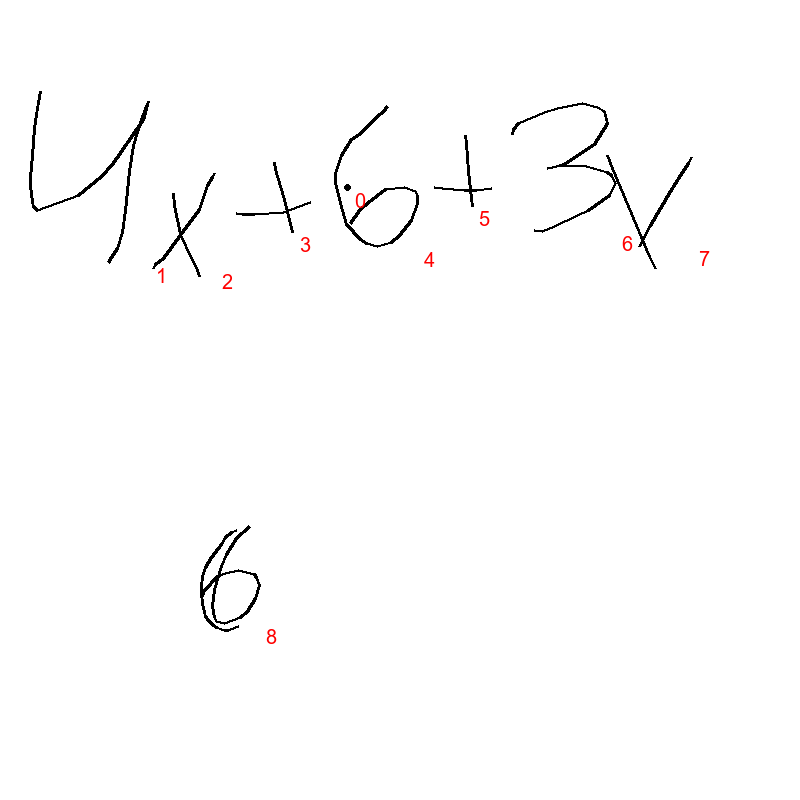 4x+6+3y
0
1 2 3 4 5 6 7
6
8